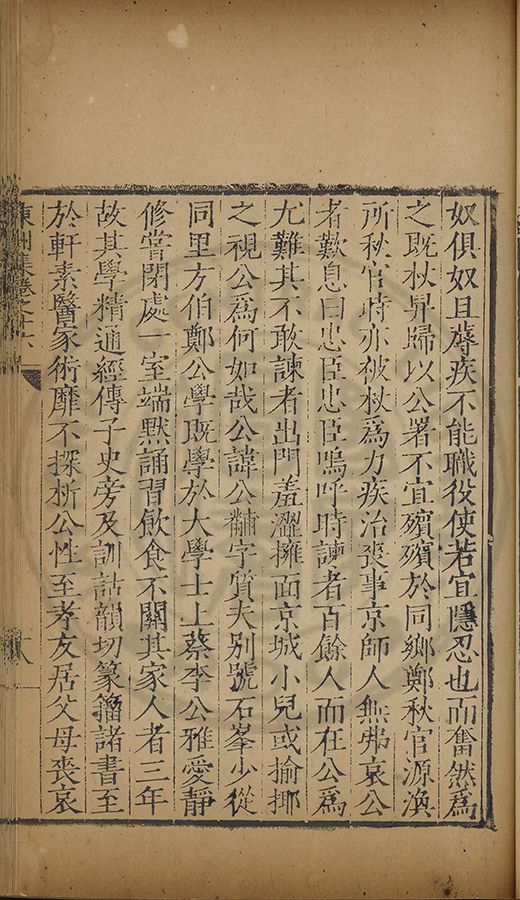 奴俱奴且孱疾不能職役使若宜隱忍也而奮然爲
之既杖舁歸以公署不宜殯殯於同鄉鄭秋官源渙
所秋官時亦被杖爲力疾治喪事京師人無弗哀公
者歎息曰忠臣忠臣嗚呼時諫者百餘人而在公爲
尤難其不敢諫者出門羞澀擁面京城小兒或揄揶
之視公爲何如哉公諱公黼字質夫別號石峯少從
同里方伯鄭公學既學於大學士上蔡李公雅愛靜
修嘗閉處一室端默誦習飲食不關其家人者三年
故其學精通經傳子史旁及訓詁韻切篆籀諸書至
於軒素醫家術靡不探析公性至孝友居父母喪哀
集卷之十六
十八